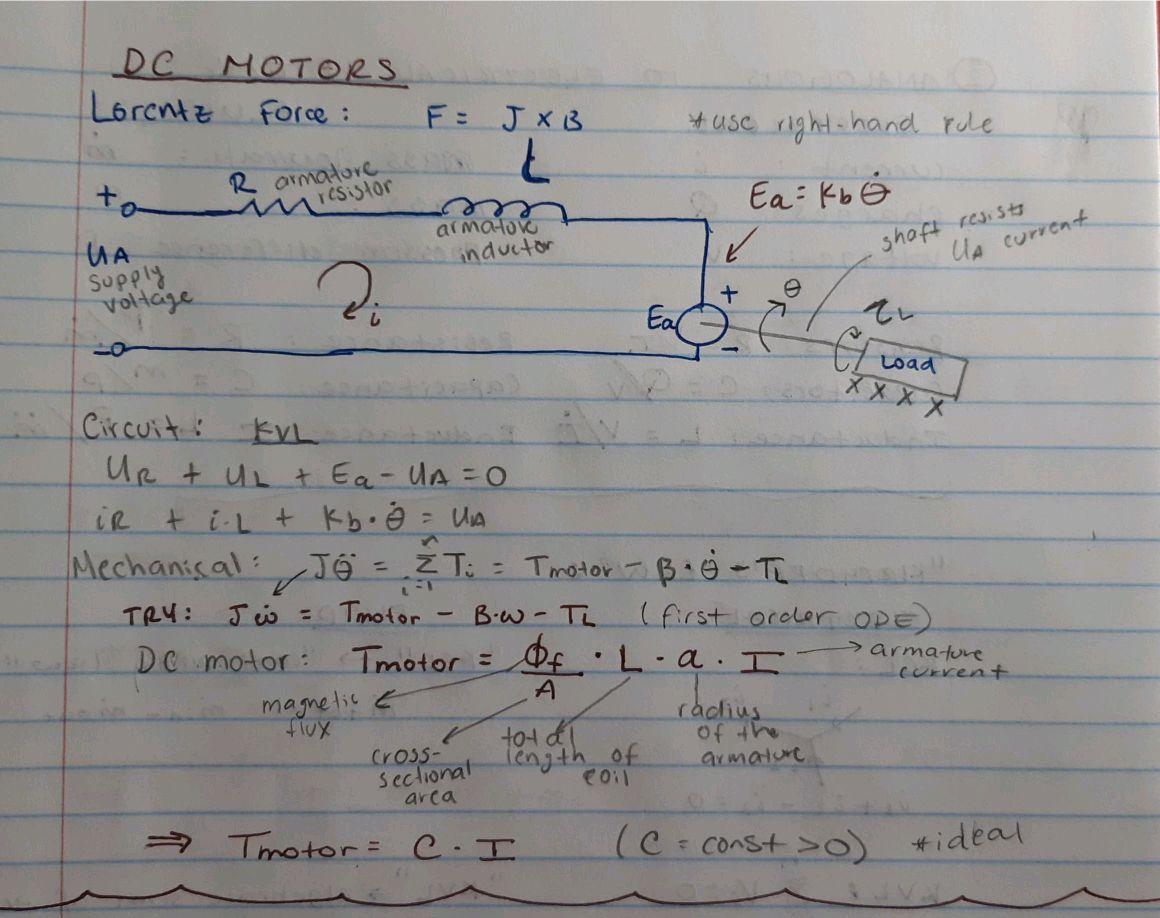 DC MOTORS
Lorentz Force: F = J × B *use right-hand rule
L
R armature resistor
armature inductor
Ea = Kb θ̇
shaft resists UA current
+
UA supply voltage
i
Ea
+
-
θ
τL
Load
x x x x
-
Circuit: KVL
UR + UL + Ea - UA = 0
iR + i·L + Kb·θ̇ = UA
Mechanical: Jθ̈ = Σ Ti = Tmotor - β·θ̇ - TL
n
i=1
TRY: Jω̇ = Tmotor - B·ω - TL (first order ODE)
DC motor: Tmotor = Φf/A · L · a · I → armature current
magnetic flux
cross-sectional area
total length of coil
radius of the armature
⇒ Tmotor = C · I (C = const > 0) *ideal